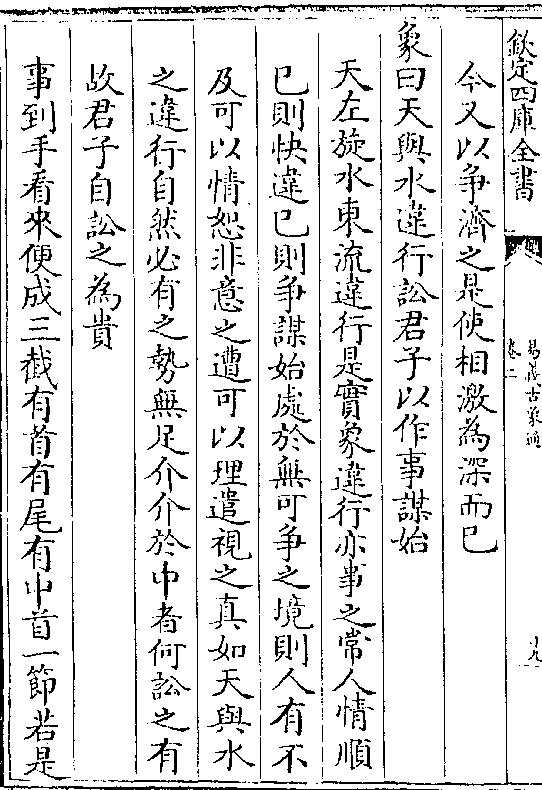 欽定四庫全書
易義古象通
卷二
十九
今又以爭濟之是使相激為深而已
象曰天與水違行訟君子以作事謀始
天左旋水東流違行是實象違行亦事之常人情順
已則快違已則爭謀始處於無可爭之境則人有不
及可以情恕非意之遭可以理遣視之真如天與水
之違行自然必有之勢無足介介於中者何訟之有
故君子自訟之為貴
事到手看來便成三截有首有尾有中首一節若是